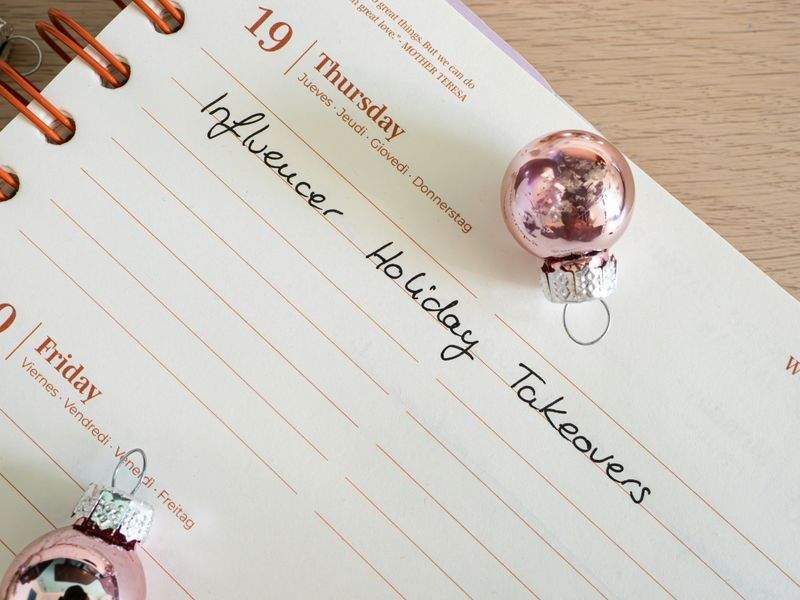 great things. But we can do
great love."- MOTHER TERESA
19
Thursday
Jueves · Jeudi · Giovedì · Donnerstag
Influencer Holiday Takeovers
Friday
Viernes · Vendredi · Venerdì · Freitag